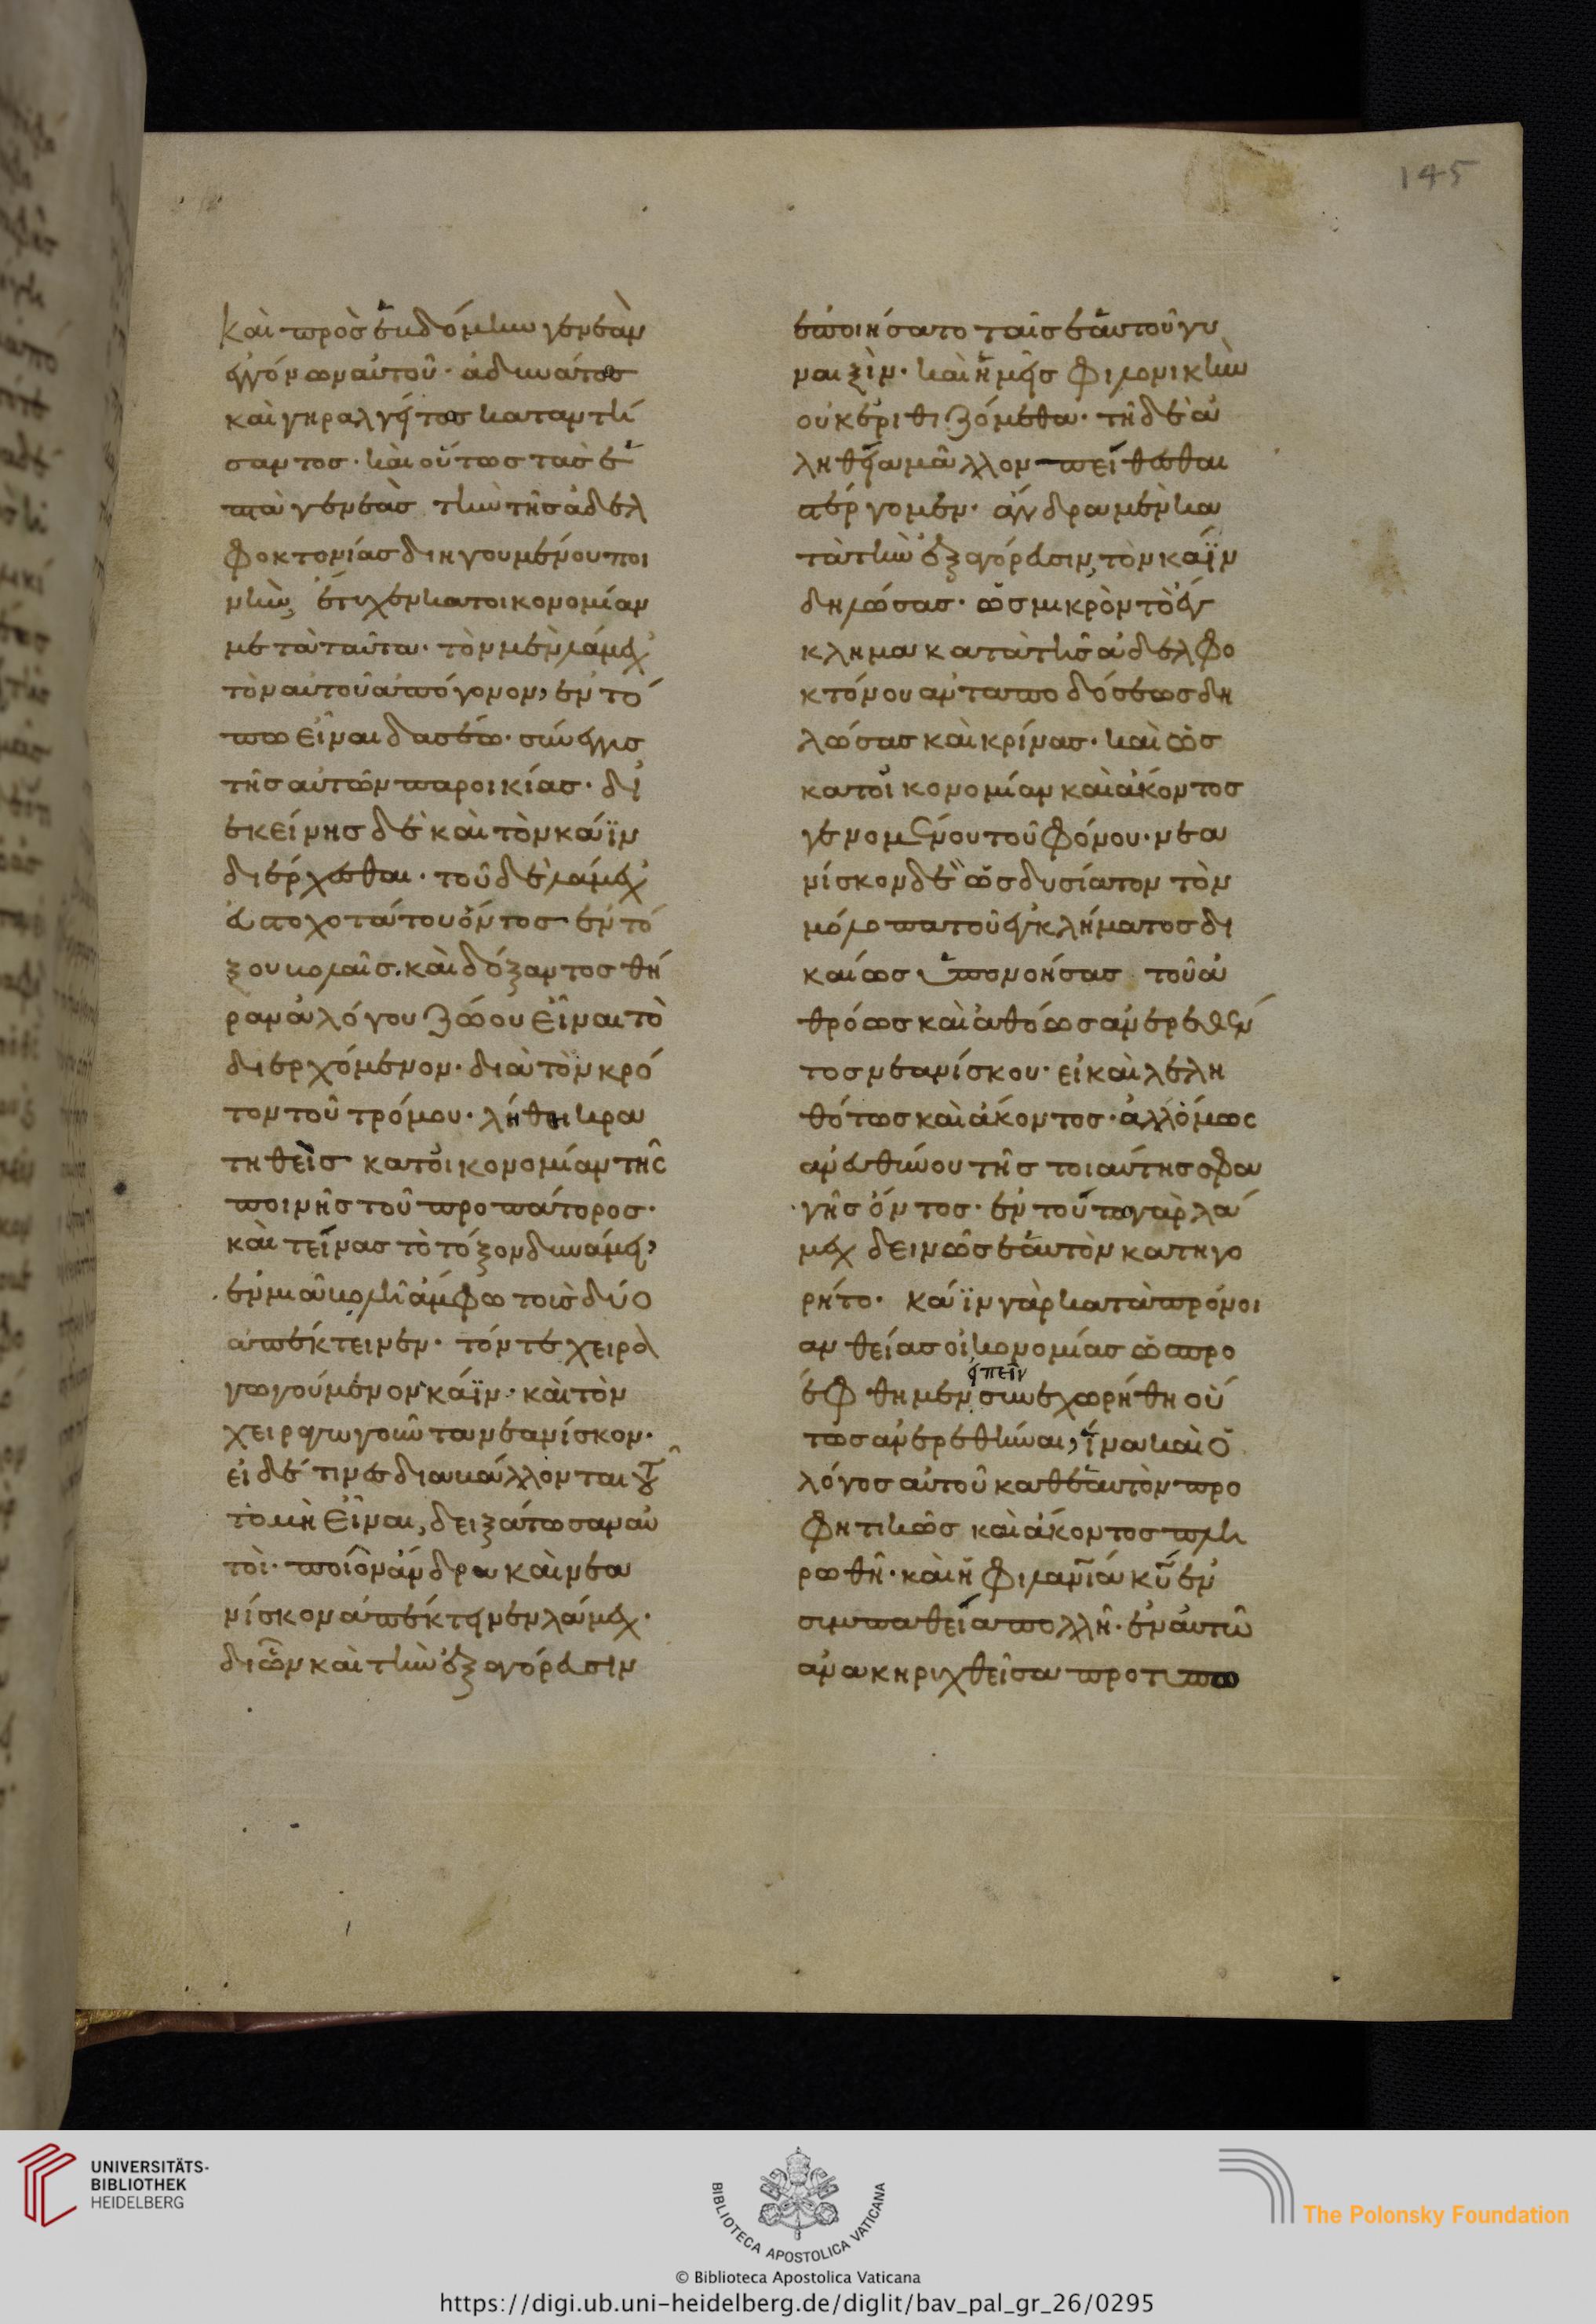 145
καὶ πρὸς ἑβδόμην γενεὰν
ἐγγόνων αὐτοῦ· ἀδυνάτου
καὶ γηραλαίου καταντή
σαντος· καὶ οὕτως τὰς ἑ
πτὰ γενεὰς τὴν τῆς ἀδελ
φοκτονίας διηγουμένου ποι
νὴν, ἔτυχεν κατοικονομίαν
μετὰ ταῦτα· τὸν μὲν λάμεχ
τὸν αὐτοῦ ἀπόγονον, ἐν τό
πω εἶναι δασέω· σύνεγγυς
τῆς αὐτῶν παροικίας· δι
ἐκείνης δὲ καὶ τὸν κάϊν
διέρχεσθαι· τοῦ δὲ λάμεχ
εὐστοχοτάτου ὄντος ἐν τό
ξου βολαῖς. καὶ δόξαντος θή
ραν ἀλόγου ζώου εἶναι τὸ
διερχόμενον· διὰ τὸν κρό
τον τοῦ τρόμου· λήθη κρα
τηθεὶς κατοικονομίαν τῆς
ποινῆς τοῦ προπάτορος·
καὶ τείνας τὸ τόξον δυνάμει,
ἐν μιᾶ βολῆ ἄμφω τοὺς δύο
ἀπέκτεινεν· τόν τε χειρα
γωγούμενον κάϊν· καὶ τὸν
χειραγωγοῦντα νεανίσκον·
εἰ δέ τινες διαβάλλονται τοῦ
το μὴ εἶναι, δειξάτωσαν αὐ
τοὶ· ποῖον ἄνδρα καὶ νεα
νίσκον ἀπέκτεινεν λάμεχ·
δι ὧν καὶ τὴν ἐξαγόρευσιν
ἐποιήσατο ταῖς ἑαυτοῦ γυ
ναιξὶν· καὶ ἡμεῖς φιλονικὴν
οὐκ ἐριθιζόμεθα· τῆ δὲ ἀ
ληθεία μᾶλλον πείθεσθαι
στέργομεν· ἄνδρα μὲν κα
τὰ τὴν ἐξαγόρευσιν, τὸν κάϊν
δηλώσας· ὡς μικρὸν τὸ ἔγ
κλημα κατὰ τῆς ἀδελφο
κτόνου ἀνταποδόσεως δη
λώσας καὶ κρίνας· καὶ ὡς
κατοικονομίαν καὶ ἄκοντος
γενομένου τοῦ φόνου· νεα
νίσκον δὲ ὡς δυσίατον τὸν
μόλοπα τοῦ ἐγκλήματος δι
καίως ὑπονοήσας τοῦ ἀ
θρόως καὶ ἀθόως ἀνερεθέν
τος νεανίσκου· εἰ καὶ λελη
θότως καὶ ἄκοντος· ἀλλ ὅμως
ἀνευθύνου τῆς τοιαύτης σφα
γῆς ὄντος· ἐν τούτω γὰρ λά
μεχ δεινῶς ἑαυτὸν κατηγο
ρήτο· κάϊν γὰρ κατὰ πρόνοι
αν θείας οἰκονομίας ὡς προ
έφθημεν εἰπεῖν συνεχωρήθη οὕ
τως ἀνερεθῆναι, ἵνα καὶ ὁ
λόγος αὐτοῦ καθ ἑαυτὸν προ
φητικῶς καὶ ἄκοντος πλη
ρωθῆ· καὶ ἡ φιλανία κυ ἐν
συμπαθεία πολλῆ· ἐν αὐτῶ
ἀνακηρυχθεῖσα προτυπω
UNIVERSITÄTS-
BIBLIOTHEK
HEIDELBERG
BIBLIOTECA APOSTOLICA VATICANA
The Polonsky Foundation
© Biblioteca Apostolica Vaticana
https://digi.ub.uni-heidelberg.de/diglit/bav_pal_gr_26/0295